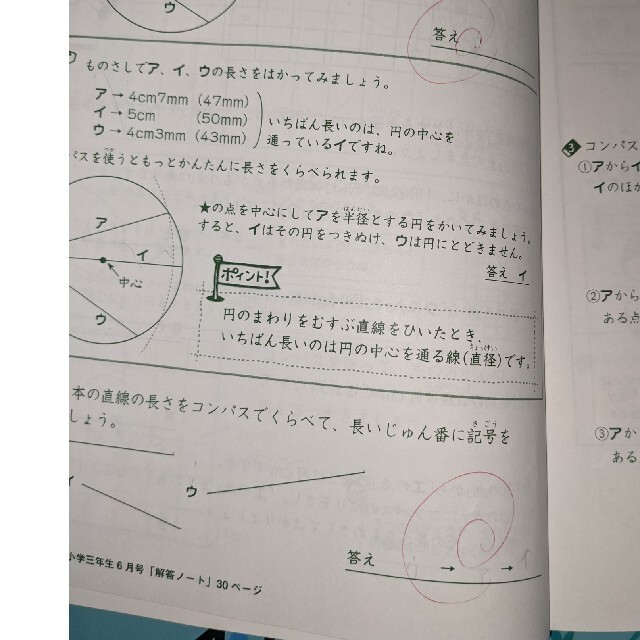 ウ
答え
ものさしでア、イ、ウの長さをはかってみましょう。
ア→4cm7mm (47mm)
イ→5cm (50mm)
ウ→4cm3mm (43mm)
いちばん長いのは、円の中心を
通っているイですね。
パスを使うともっとかんたんに長さをくらべられます。
ア
イ
中心
ウ
★の点を中心にしてアを半径とする円をかいてみましょう。
すると、イはその円をつきぬけ、ウは円にとどきません。
答え イ
ポイント!
円のまわりをむすぶ直線をひいたとき、
いちばん長いのは円の中心を通る線(直径)です。
本の直線の長さをコンパスでくらべて、長いじゅん番に記号を
しょう。
イ
ウ
答え → →
小学三年生6月号「解答ノート」30ページ
3 コンパス
①アからイ
イのほか
②アから
ある点
③アか
ある